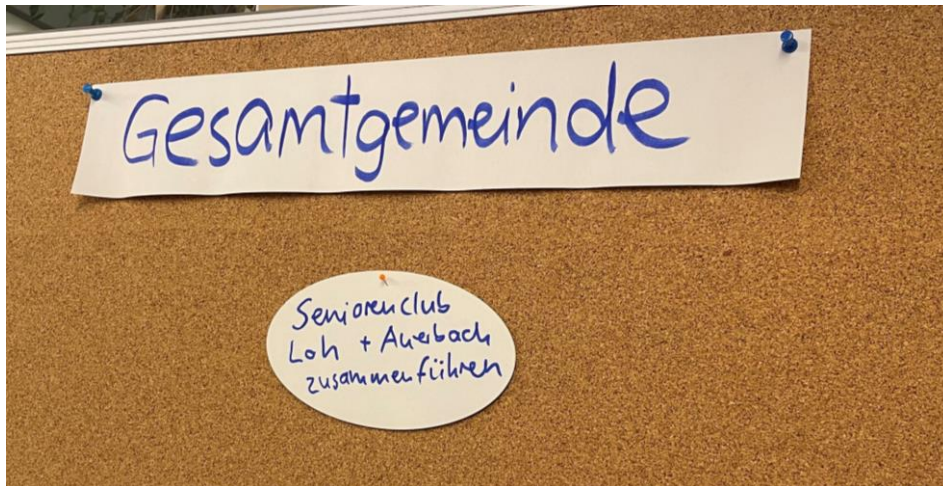 Gesamtgemeinde
Seniorenclub
Loh + Auerbach
zusammenführen